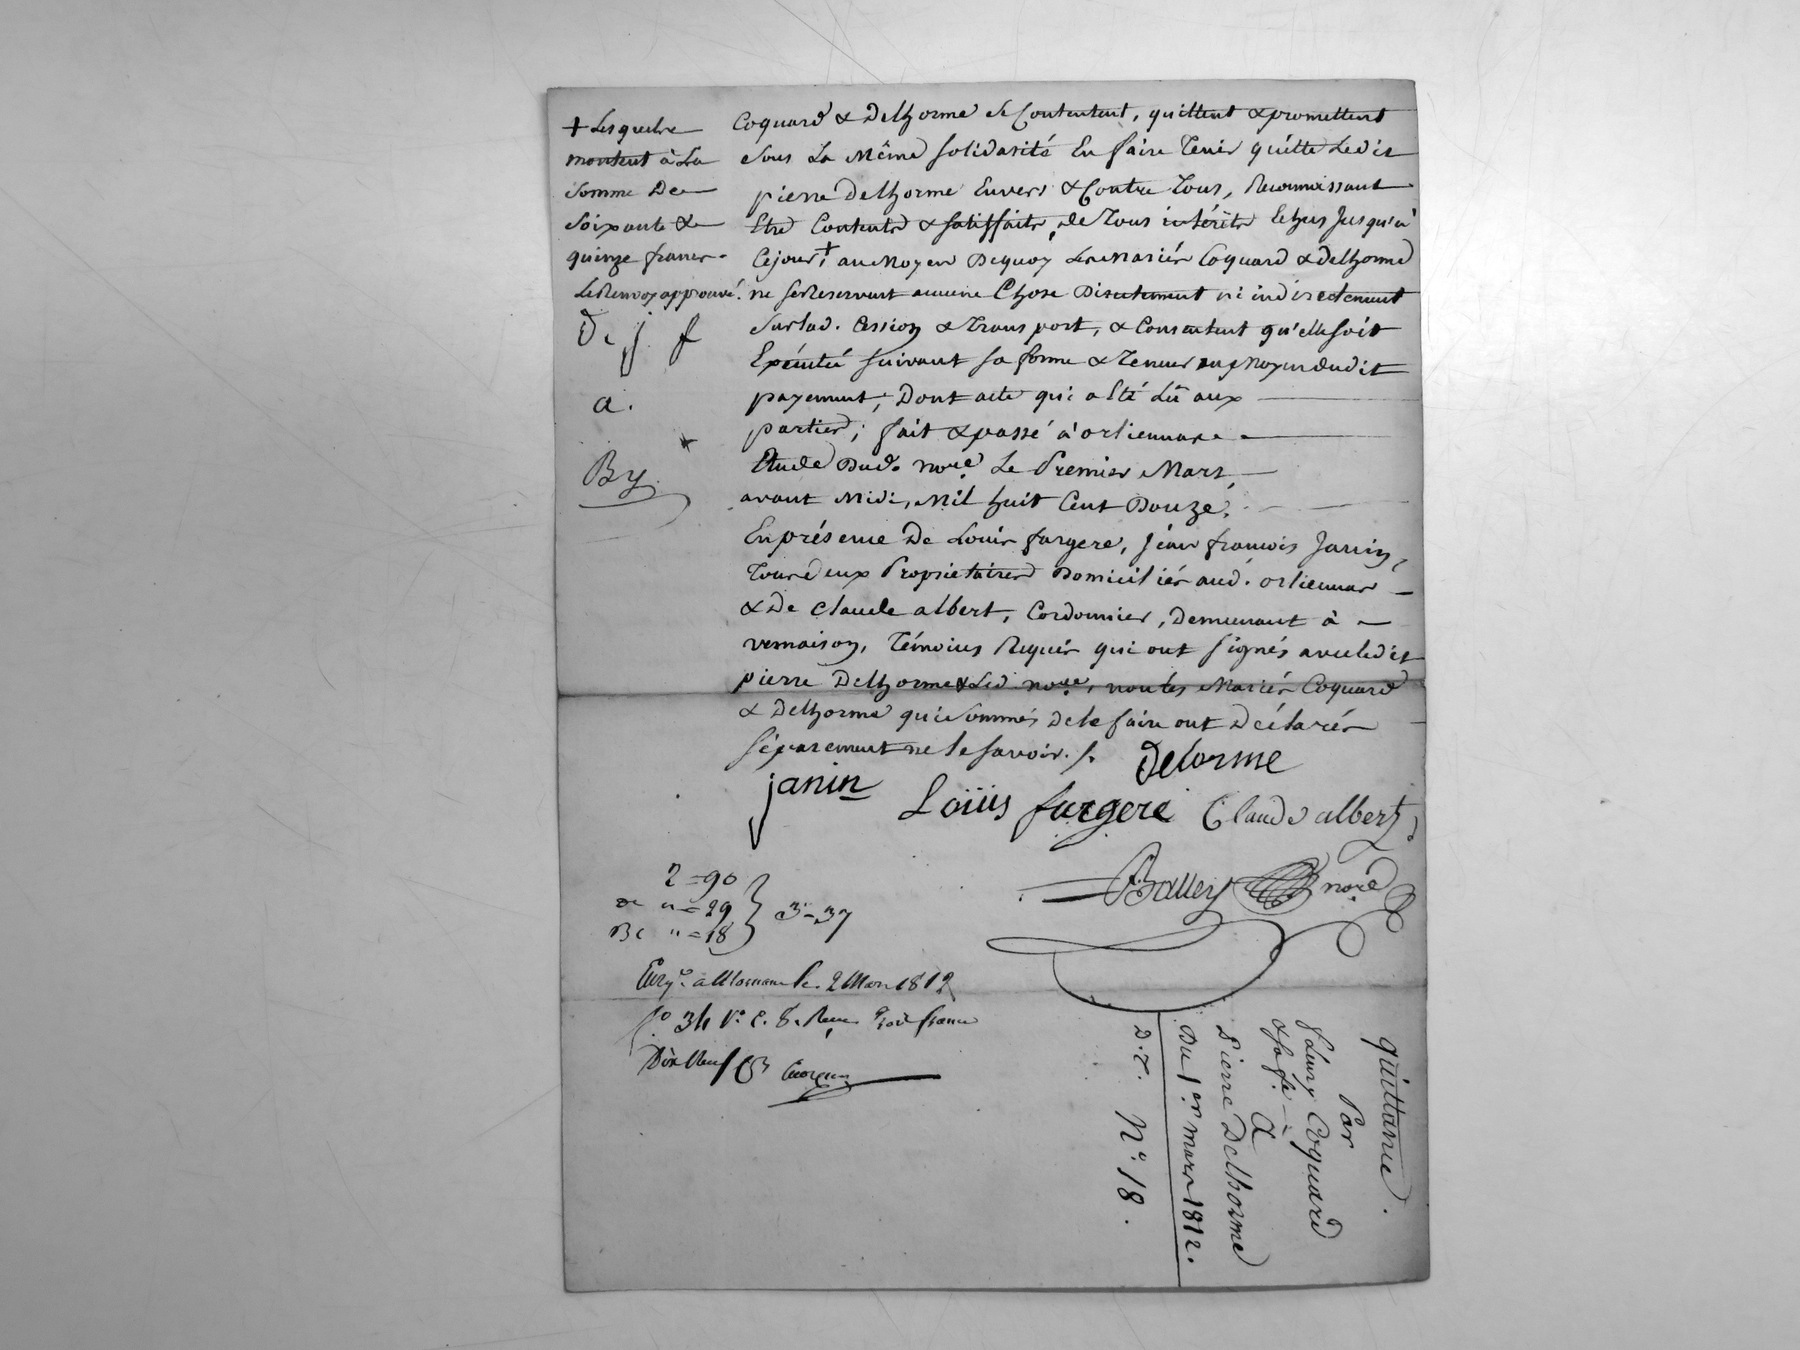 Coquard & Delhorme se Contentent, quittent & promettent
sous La Même solidarité En faire Tenir quitte Ledit
pierre Delhorme Envers & Contre Tous, Reconnoissant
Etre Contents & satisfaits, de Tous intérêts Echus Jusqu'à
Cejour, + au Moyen Dequoy Les Mariés Coquard & Delhorme
ne se Reservant aucune Chose Directement ni indirectement
Surlad. Cession & Transport, & Consentent qu'elle soit
Exécuté suivant sa forme & Teneur au Moyen dudit
payement, Dont acte qui a Eté Lû aux
parties; fait & passé à orliennas
Etude Dud. no.re Le Premier Mars,
avant Midi, Mil huit Cent Douze.
En présence De Louis fargere, Jean françois Janin,
Tous deux Proprietaires Domiciliés aud. orliennas
& De Claude albert, Cordonnier, Demeurant à
vernaison, Témoins Requis qui ont signés avec ledit
pierre Delhorme & Led. no.re, non les Mariés Coquard
& Delhorme qui sommés de le faire ont Déclarés
séparement ne le savoir. /.
+ Lesquels
montent à La
somme De
soixante &
quinze francs.
Le Renvoy approuvé.
D. j. f
a.
By
Delorme
janin
Loüis fargere Claude albert
Balley no.re
2 = 90
" = 29
" = 18
3 = 37
le 2 Mars 1812
f.o 34 V.o C. 8. Reçu trois francs
Dix Neuf
quittance.
Par
fleury Coquard
& sa fe.
A
Pierre Delhorme
Du 1.er mars 1812.
N.o 18.